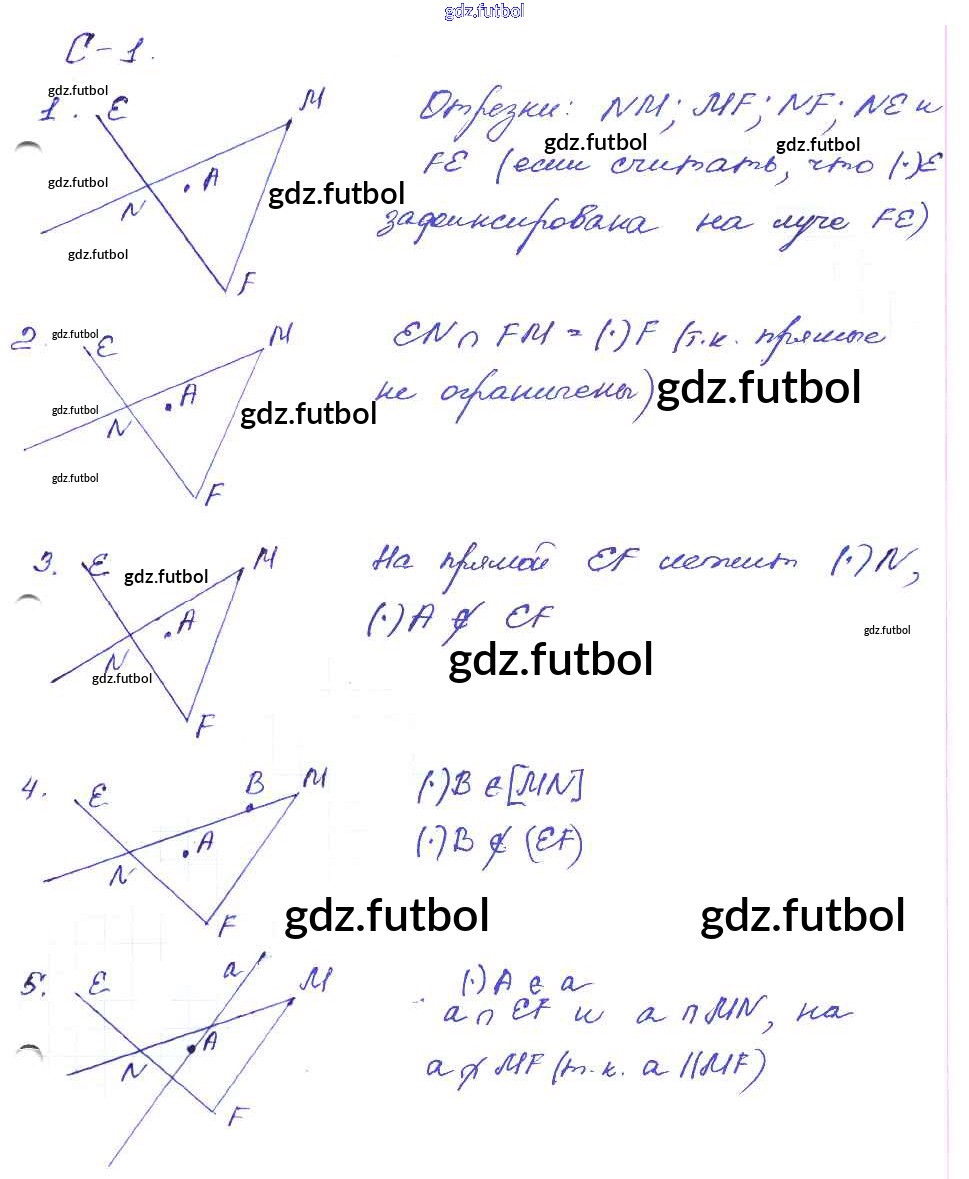 gdz.futbol
С-1.
gdz.futbol
1. E M Отрезки: NM; MF; NF; NE и
gdz.futbol gdz.futbol
FE (если считать, что (·)E
gdz.futbol A gdz.futbol
N зафиксирована на луче FE)
gdz.futbol
F
2. gdz.futbol E M EN ∩ FM = (·)F (т.к. прямые
не ограничены) gdz.futbol
gdz.futbol A gdz.futbol
N
gdz.futbol
F
3. E M На прямой EF лежит (·)N,
gdz.futbol
A (·)A ∉ EF gdz.futbol
N gdz.futbol
gdz.futbol
F
4. E B M (·)B ∈ [MN]
A (·)B ∉ (EF)
N
F gdz.futbol gdz.futbol
a
5. E M (·)A ∈ a
a ∩ EF и a ∩ MN, на
A
N a ∩̸ MF (т.к. a || MF)
F